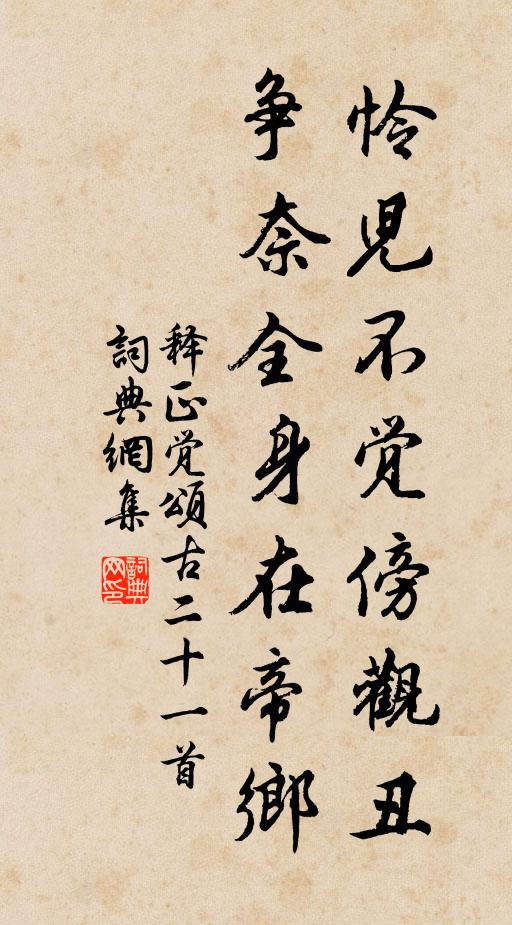 怜児不觉傍觀丑
争奈全身在帝鄉
释正觉頌古二十一首
詞典網集
詞典网印